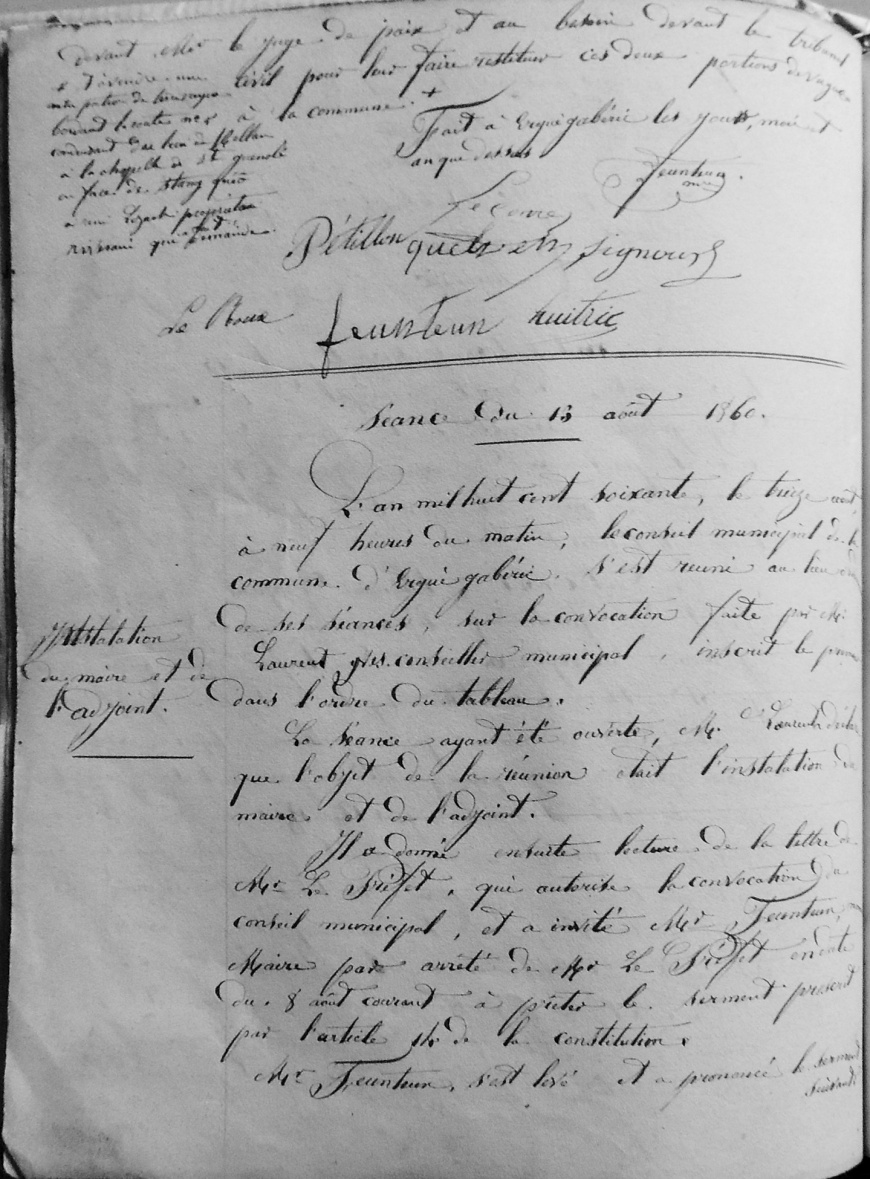 devant Mr le juge de paix et au besoin devant le tribunal
civil pour leur faire restituer ces deux portions de
à la commune. +
Fait à Ergué gabéric les jour, mois et
an que dessus
Feunteun
maire
+
bordant la route n°
à la chapelle de St guenolé
en face de Stang
propriétaire
qui
Pétillon
Signour
Le Roux feunteun huitric
Séance du 13 août 1860.
L'an mil huit cent soixante, le treize août,
à neuf heures du matin, le conseil municipal de la
commune d'Ergué gabéric s'est reuni au lieu
de ses séances, sur la convocation faite par Mr
Instalation
du maire et de
l'adjoint.
Laurent yves. conseiller municipal, inscrit le
dans l'ordre du tableau.
La séance ayant été ouverte, Mr Laurent
que l'objet de la réunion était l'instalation du
maire et de l'adjoint.
Il a donné ensuite lecture de la lettre de
Mr Le Préfet, qui autorise la convocation du
conseil municipal, et a invité Mr Feunteun,
Maire par arrêté de Mr Le Préfet en date
du 8 août courant à prêter le serment prescrit
par l'article 14 de la constitution.
Mr Feunteun, s'est levé et a prononcé le serment
suivant